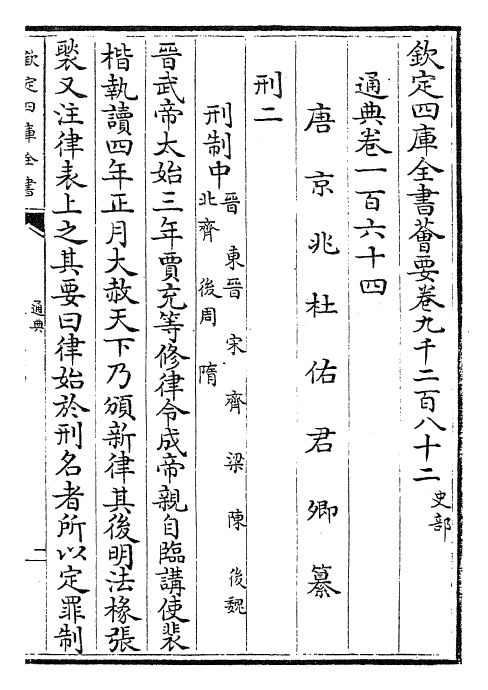 欽定四庫全書薈要卷九千二百八十二 史部
通典卷一百六十四
唐京兆杜佑君卿纂
刑二
刑制中 晉 東晉 宋 齊 梁 陳 後魏
北齊 後周 隋
晉武帝太始三年賈充等修律令成帝親自臨講使裴
楷執讀四年正月大赦天下乃頒新律其後明法掾張
裴又注律表上之其要曰律始於刑名者所以定罪制
欽定四庫全書
通典